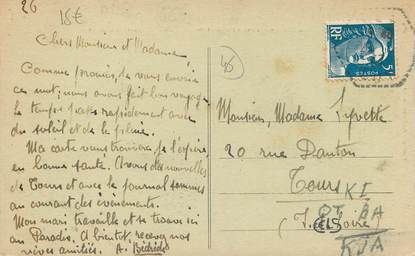 26
15€
Chers Monsieur et Madame,
Comme promis, je vous envoie
ce mot; nous avons fait bon voyage
le temps passe rapidement avec
du soleil et de la pluie.
Ma carte vous trouvera je l'espère
en bonne santé. Avons des nouvelles
de Tours et avec le journal sommes
au courant des évènements.
Mon mari travaille et se trouve ici
au Paradis. A bientôt, recevez nos
vives amitiés. A.
RF
5F
POSTES
Monsieur, Madame
20 rue Danton
Tours
KI
(I. et Loire)
KJA